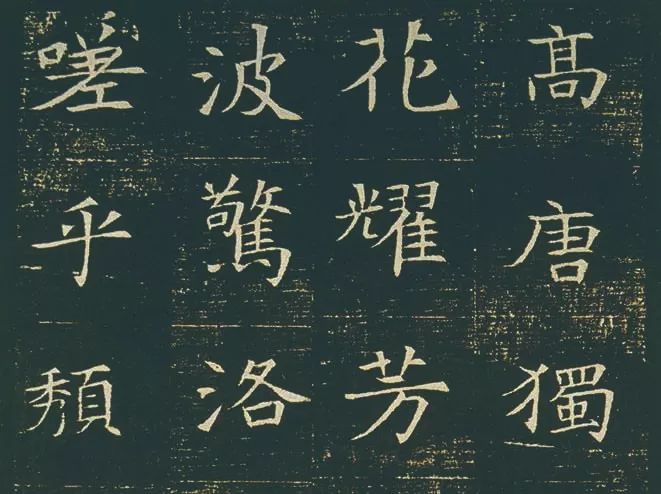 高唐獨
花耀芳
波驚洛
嗟乎頹